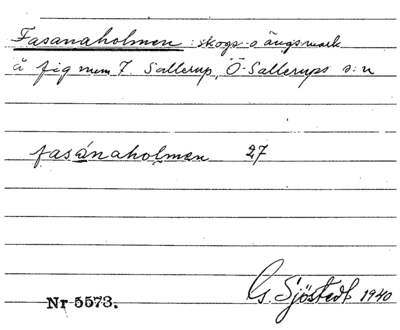 Fasanaholmen : skogs- o ängsmark
å fig num 7. Sallerup, Ö-Sallerups s:n
fasánaholmen 27
Nr 5573.
G. Sjöstedt 1940